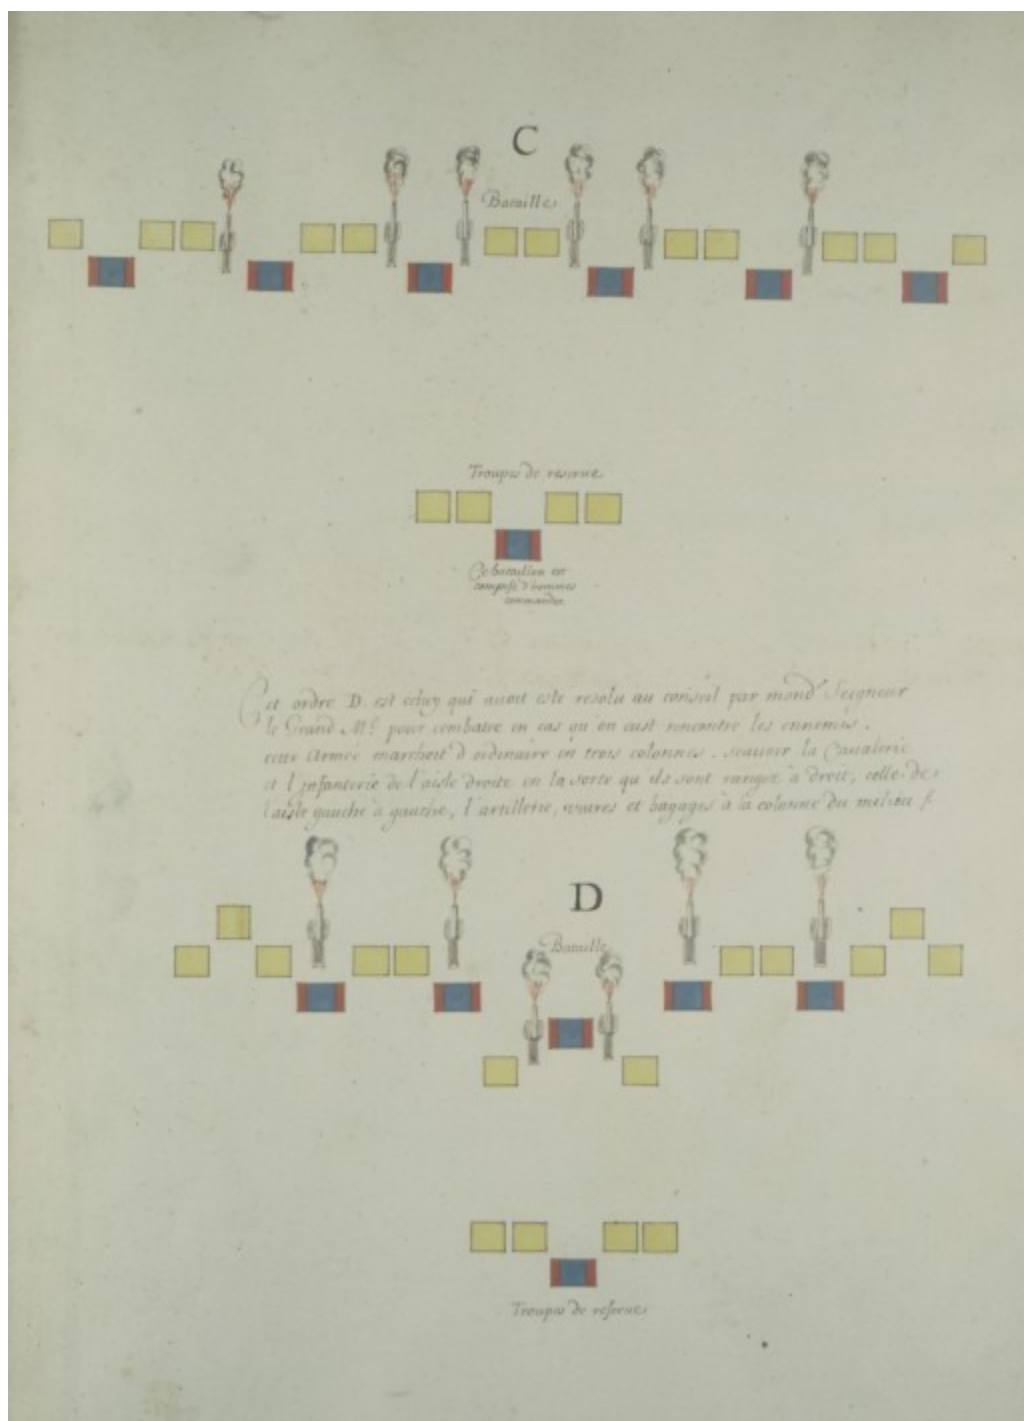 C
Bataille
Troupes de reserue
Ce bataillon est
composé d'hommes
commandez
Cet ordre D. est celuy qui auoit esté resolu au conseil par mond.r Seigneur
le Grand M.e pour combatre en cas qu'on eust rencontré les ennemis.
cette Armée marchoit d'ordinaire en trois colonnes. scauoir la Caualerie
et l'jnfanterie de l'aisle droite en la sorte qu'ils sont rangez à droit, celle de
l'aisle gauche à gauche, l'artillerie, viures et bagages à la colonne du milieu
D
Bataille
Troupes de reserue